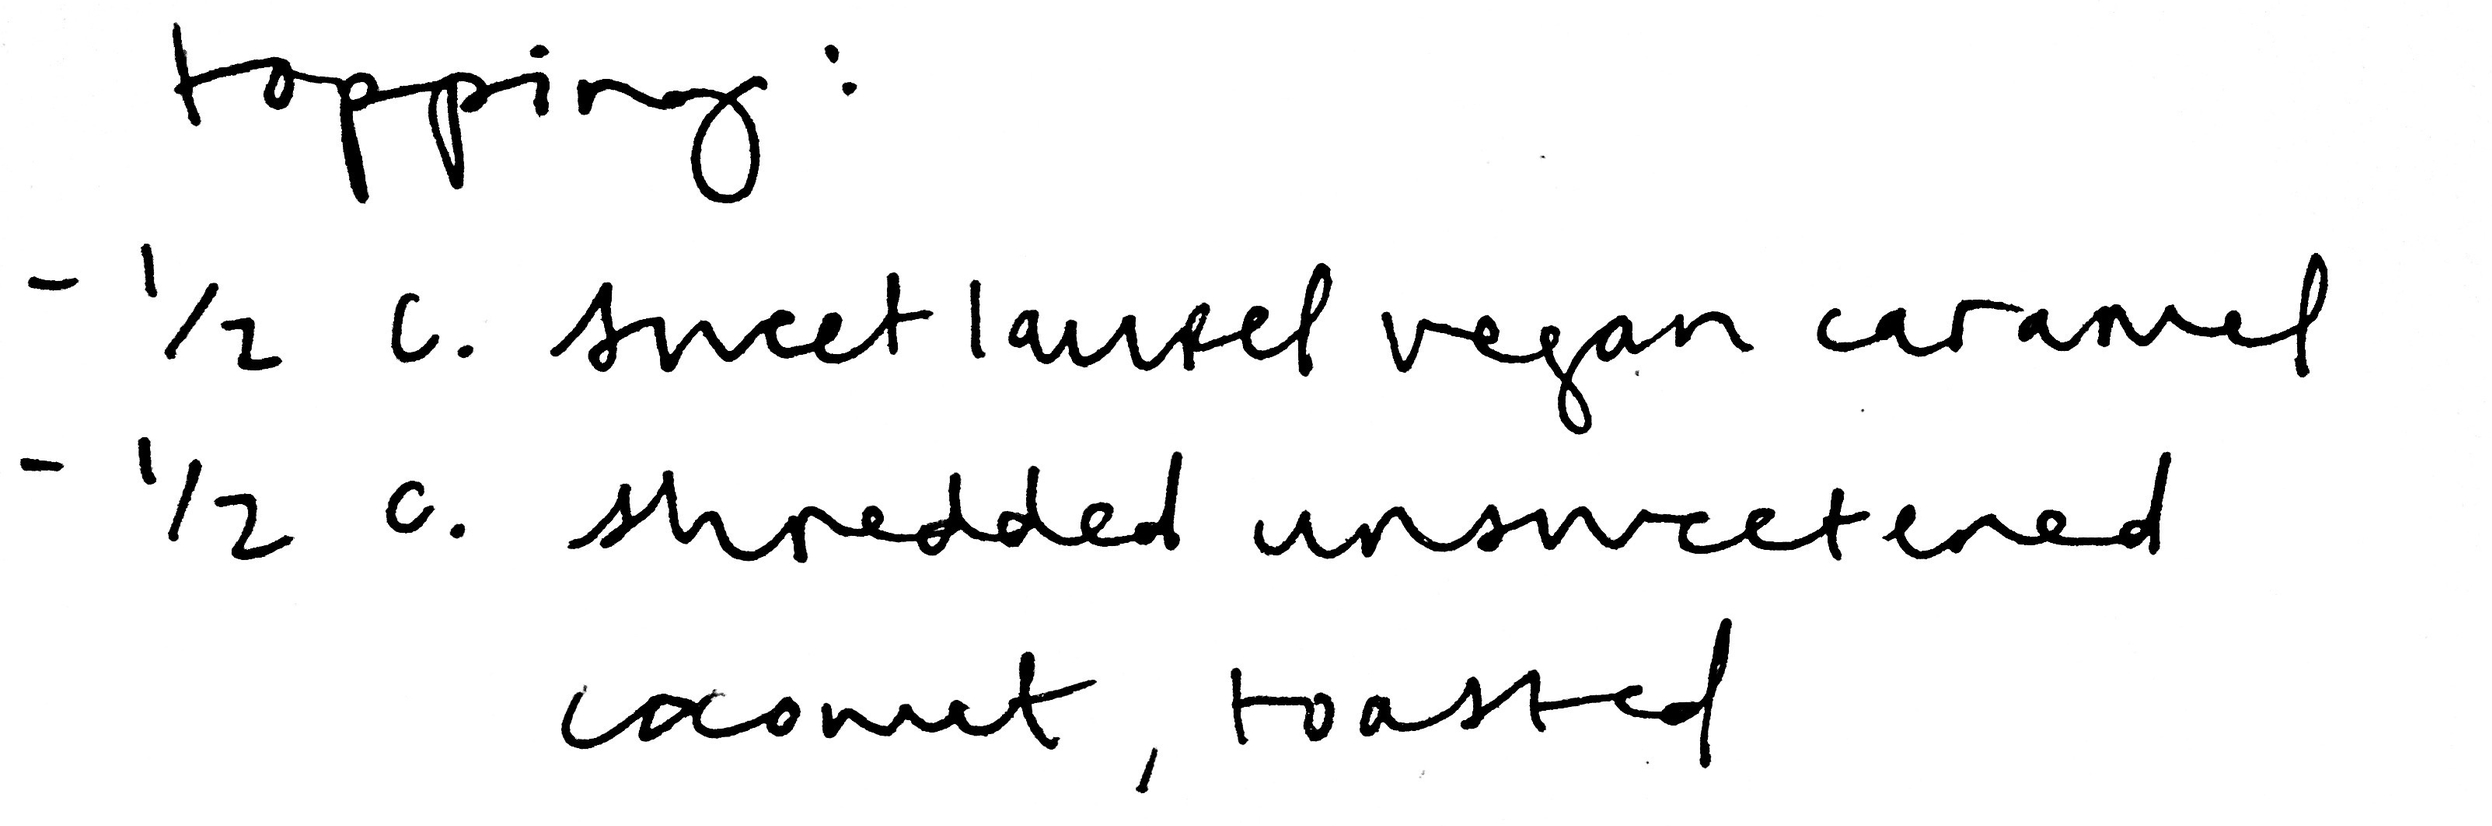 topping:
- 1/2 c. sweet laurel vegan caramel
- 1/2 c. shredded unsweetened
coconut, toasted